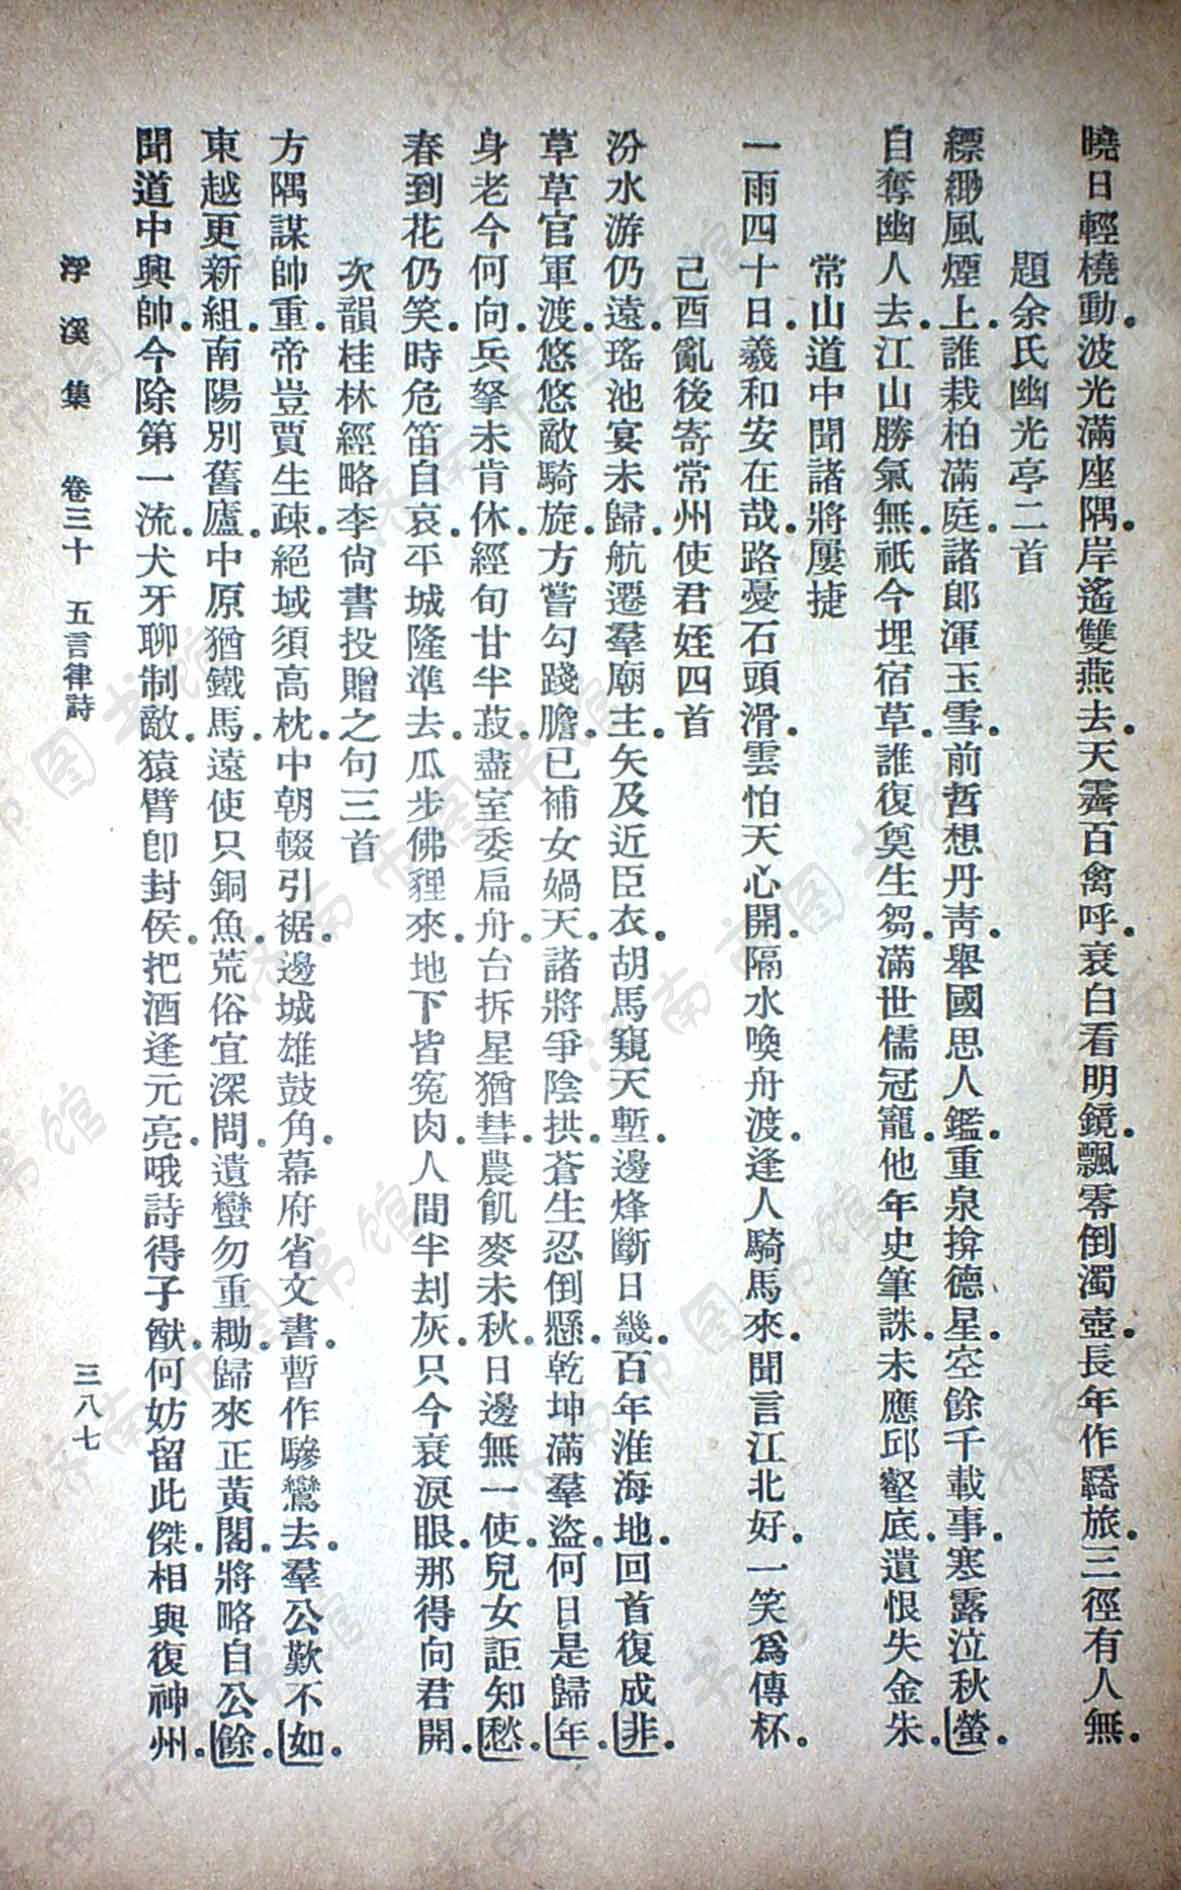 曉日輕橈動。波光滿座隅。岸遙雙燕去。天霽百禽呼。衰白看明鏡。飄零倒濁壺。長年作羇旅。三徑有人無。
題余氏幽光亭二首
縹緲風煙上。誰栽柏滿庭。諸郎渾玉雪。前哲想丹靑。舉國思人鑑。重泉揜德星。空餘千載事。寒露泣秋螢。
自奪幽人去。江山勝氣無。祇今埋宿草。誰復奠生芻。滿世儒冠寵。他年史筆誅。未應邱壑底。遺恨失金朱。
常山道中聞諸將屢捷
一雨四十日。羲和安在哉。路憂石頭滑。雲怕天心開。隔水喚舟渡。逢人騎馬來。聞言江北好。一笑爲傳杯。
己酉亂後寄常州使君姪四首
汾水游仍遠。瑤池宴未歸。航遷羣廟主。矢及近臣衣。胡馬窺天塹。邊烽斷日畿。百年淮海地。回首復成非。
草草官軍渡。悠悠敵騎旋。方嘗勾踐膽。已補女媧天。諸將爭陰拱。蒼生忍倒懸。乾坤滿羣盜。何日是歸年。
身老今何向。兵拏未肯休。經旬甘半菽。盡室委扁舟。台拆星猶彗。農飢麥未秋。日邊無一使。兒女詎知愁。
春到花仍笑。時危笛自哀。平城隆準去。瓜步佛貍來。地下皆寃肉。人間半刦灰。只今衰淚眼。那得向君開。
次韻桂林經略李尙書投贈之句三首
方隅謀帥重。帝豈賈生疎。絕域須高枕。中朝輟引裾。邊城雄鼓角。幕府省文書。暫作驂鸞去。羣公歎不如。
東越更新組。南陽別舊廬。中原猶鐵馬。遠使只銅魚。荒俗宜深問。遺蠻勿重耡。歸來正黃閣。將略自公餘。
聞道中興帥。今除第一流。犬牙聊制敵。猿臂卽封侯。把酒逢元亮。哦詩得子猷。何妨留此傑。相與復神州。
浮溪集 卷三十 五言律詩 三八七
濟南市图书馆